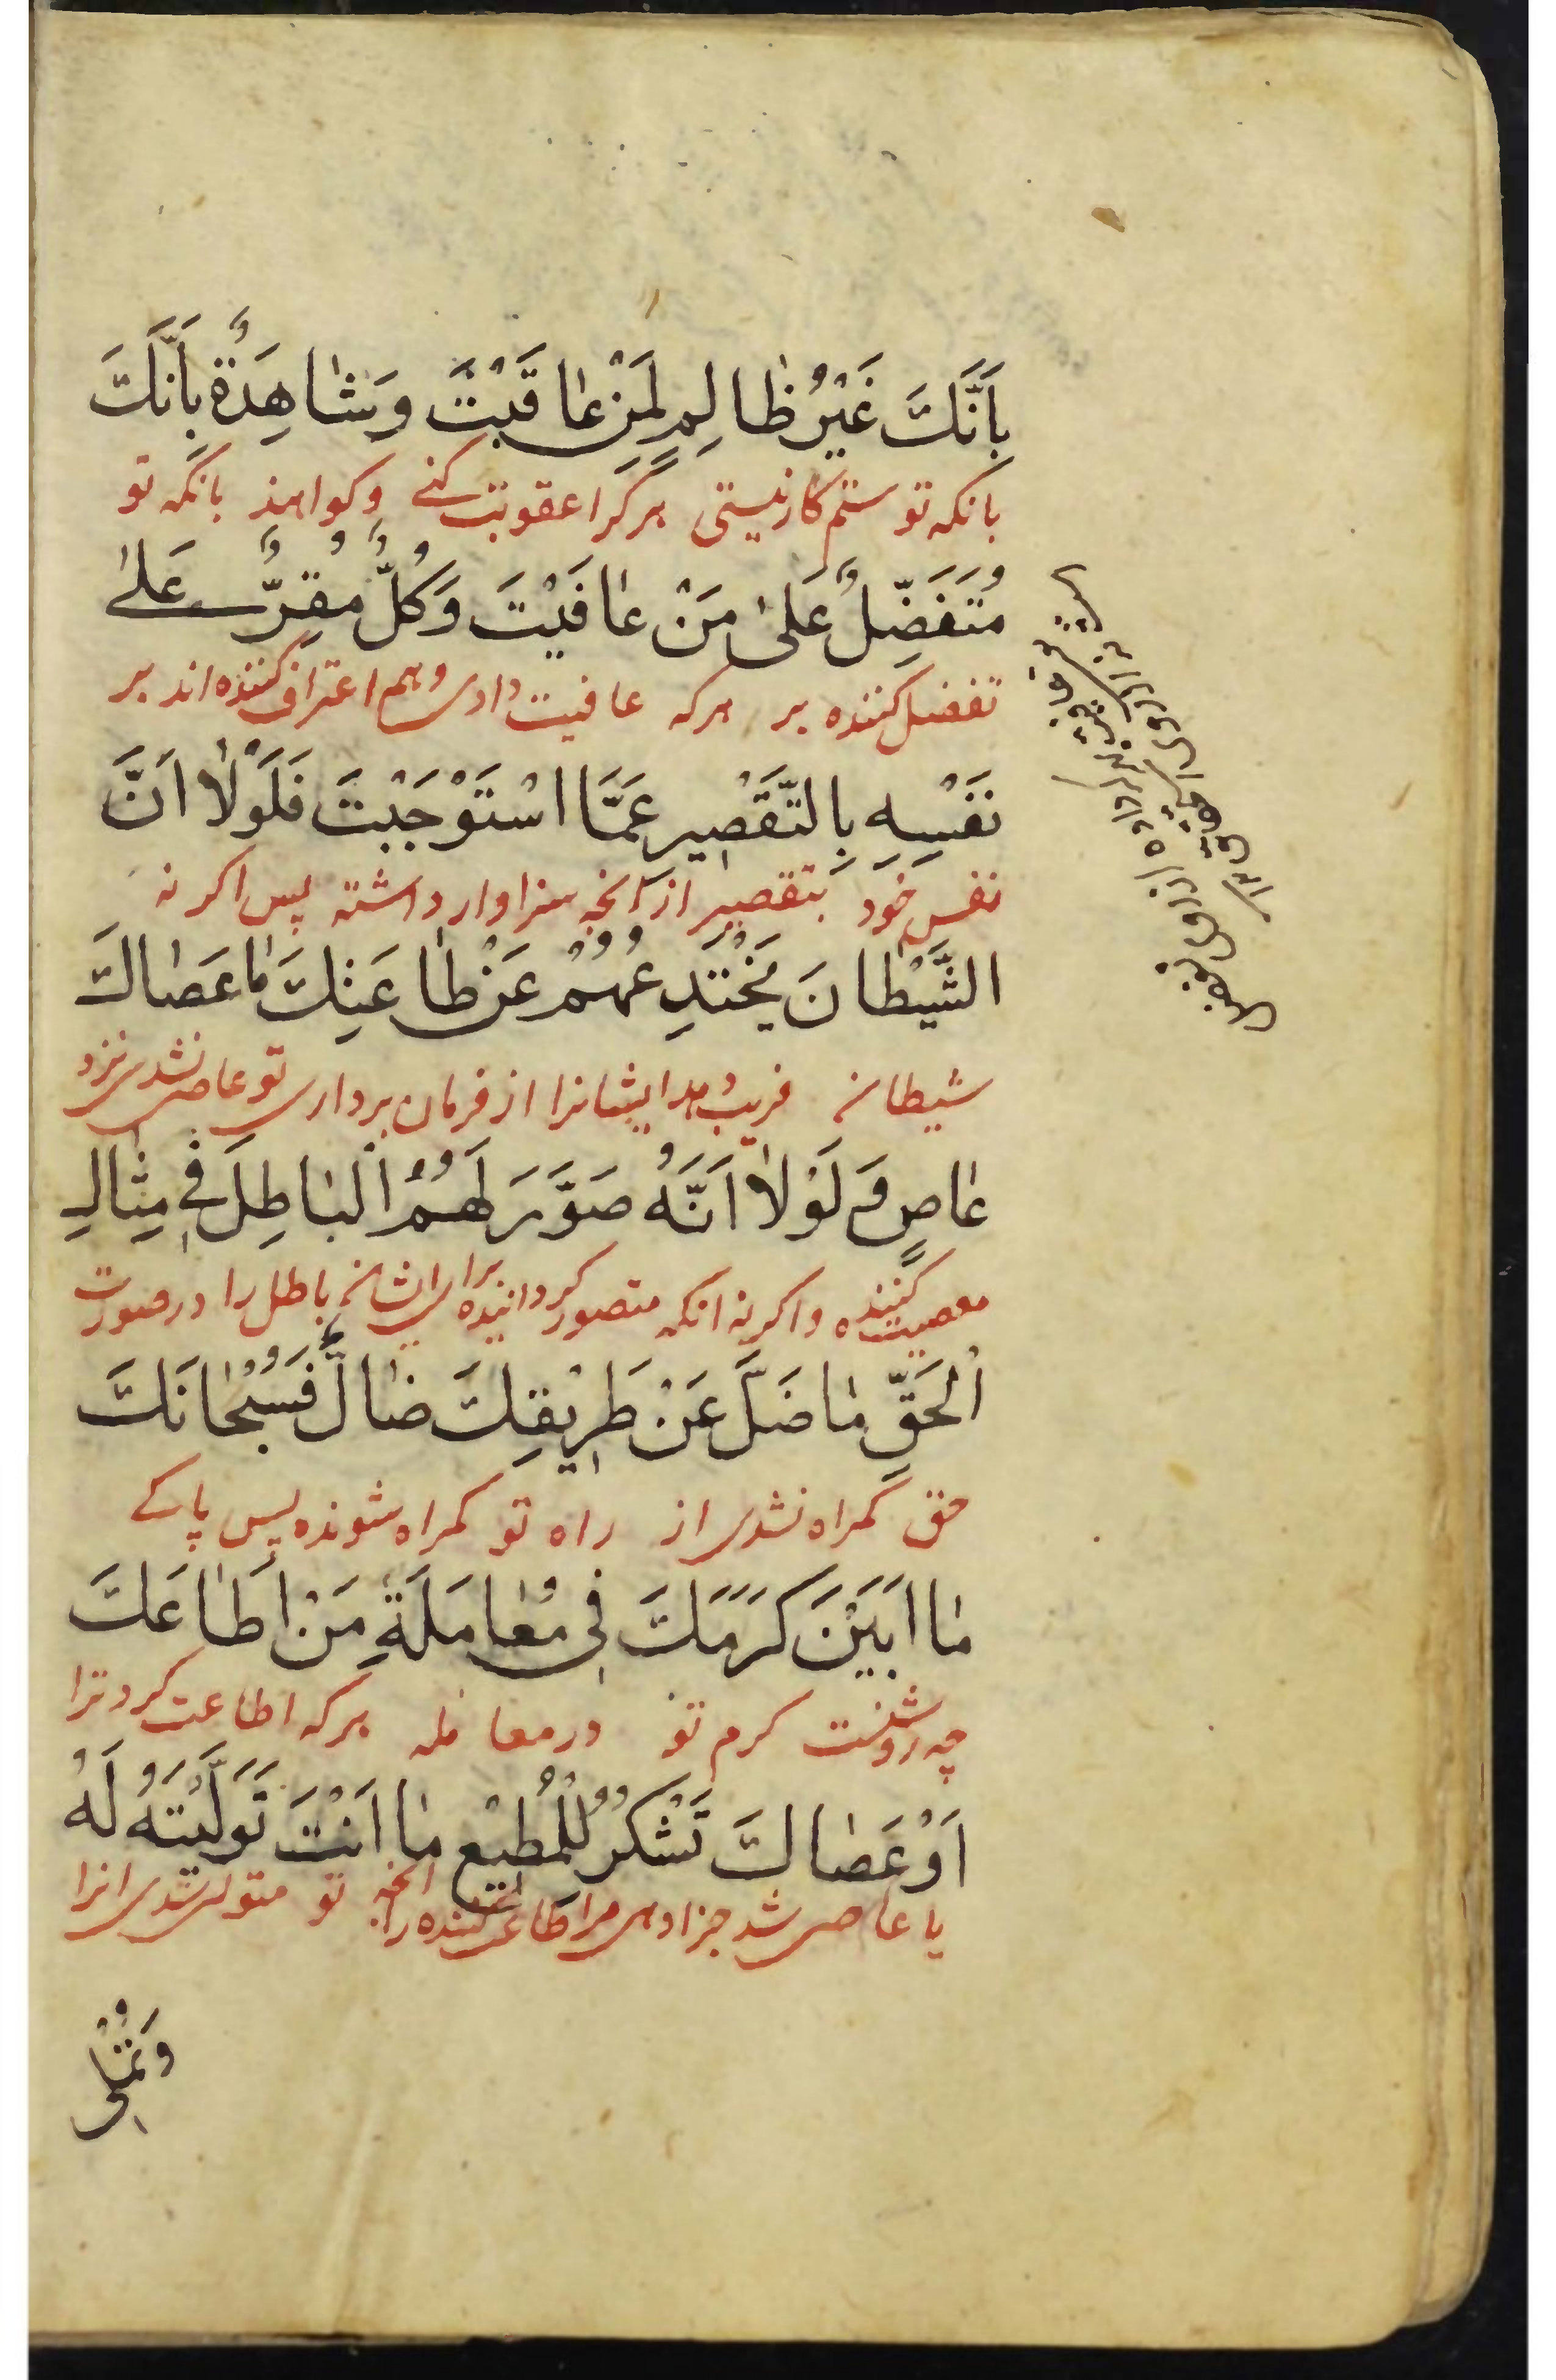 بِاَنَّكَ غَيْرُ ظٰالِمٍ لِمَنْ عٰاقَبْتَ وَشٰاهِدَةٌ بِاَنَّكَ
بانکه تو ستم کار نیستی هر کرا عقوبت کنے و کواهند بانکه تو
مُتَفَضِّلٌ عَلىٰ مَنْ عٰافَيْتَ وَكُلٌّ مُقِرٌّ عَلىٰ
تفضل کننده بر هرکه عافیت دادی و همه اعتراف کننده اند بر
نَفْسِهِ بِالتَّقْصِيرِ عَمَّا اسْتَوْجَبْتَ فَلَوْلٰا اَنَّ
نفس خود بتقصیر از انچه سزاوار داشته پس اکر نه
الشَّيْطٰانَ يَخْتَدِعُهُمْ عَنْ طٰاعَتِكَ مٰا عَصٰاكَ
شیطان فریب دهد ایشانرا از فرمان برداری تو عاصی نشدی نزد
عٰاصٍ وَلَوْلٰا اَنَّهُ صَوَّرَ لَهُمُ الْبٰاطِلَ فِي مِثٰالِ
معصیت کننده و اکر نه انکه متصور کردانیده برای ایشان باطل را در صورت
الْحَقِّ مٰا ضَلَّ عَنْ طَرِيقِكَ ضٰالٌّ فَسُبْحٰانَكَ
حق کمراه نشدی از راه تو کمراه شونده پس پاکے
مٰا اَبْيَنَ كَرَمَكَ فِي مُعٰامَلَةِ مَنْ اَطٰاعَكَ
چه روشنست کرم تو در معامله هرکه اطاعت کرد ترا
اَوْ عَصٰاكَ تَشْكُرُ لِلْمُطِيعِ مٰا اَنْتَ تَوَلَّيْتَهُ لَهُ
یا عاصی شد جزا دهی مر اطاعت کننده را انچه تو متولی شدی انرا
وَتُمْلِي